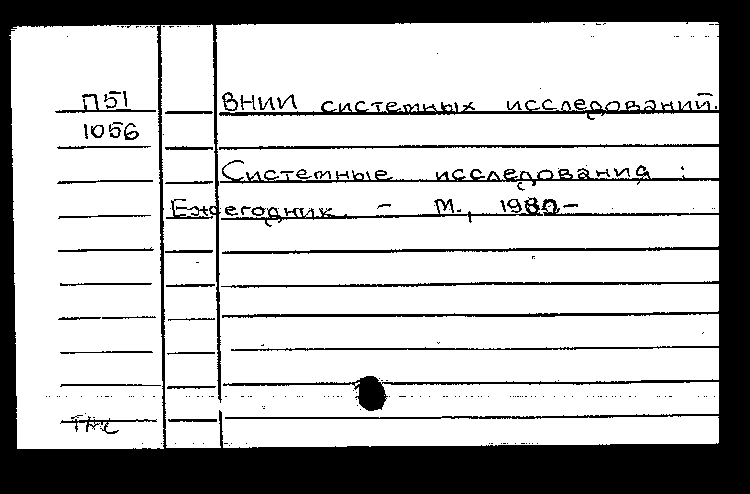 П51 ВНИИ системных исследований.
1056
Системные исследования :
Ежегодник. - М., 1980-